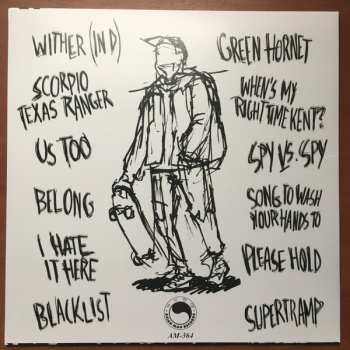 WITHER (IN D)
SCORPIO
TEXAS RANGER
US TOO
BELONG
I HATE
IT HERE
BLACKLIST
GREEN HORNET
WHEN'S MY
RIGHT TIME KENT?
SPY VS. SPY
SONG TO WASH
YOUR HANDS TO
PLEASE HOLD
SUPERTRAMP
AM-364